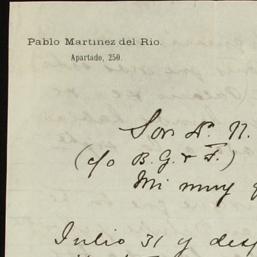 Pablo Martinez del Rio.
Apartado, 250.
Sor. Dn. N.
(c/o B. G. & F.)
Mi muy
Julio 31 y desp